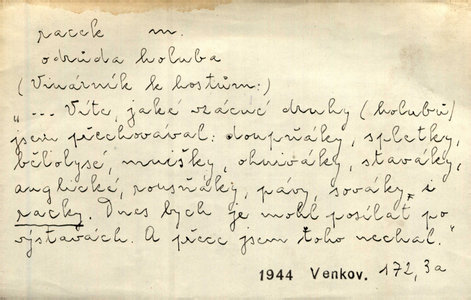 racek m.
odrůda holuba
(Vinárník k hostům:)
„... Víte, jaké vzácné druhy (holubů)
jsem přechovával: doupňáky, špletky,
bělolysé, mušky, ohniváky, staváky,
anglické, rousňáky, pávy, sováky, i
racky. Dnes bych je mohl posílat po
výstavách. A přece jsem toho nechal."
1944 Venkov. 172, 3a